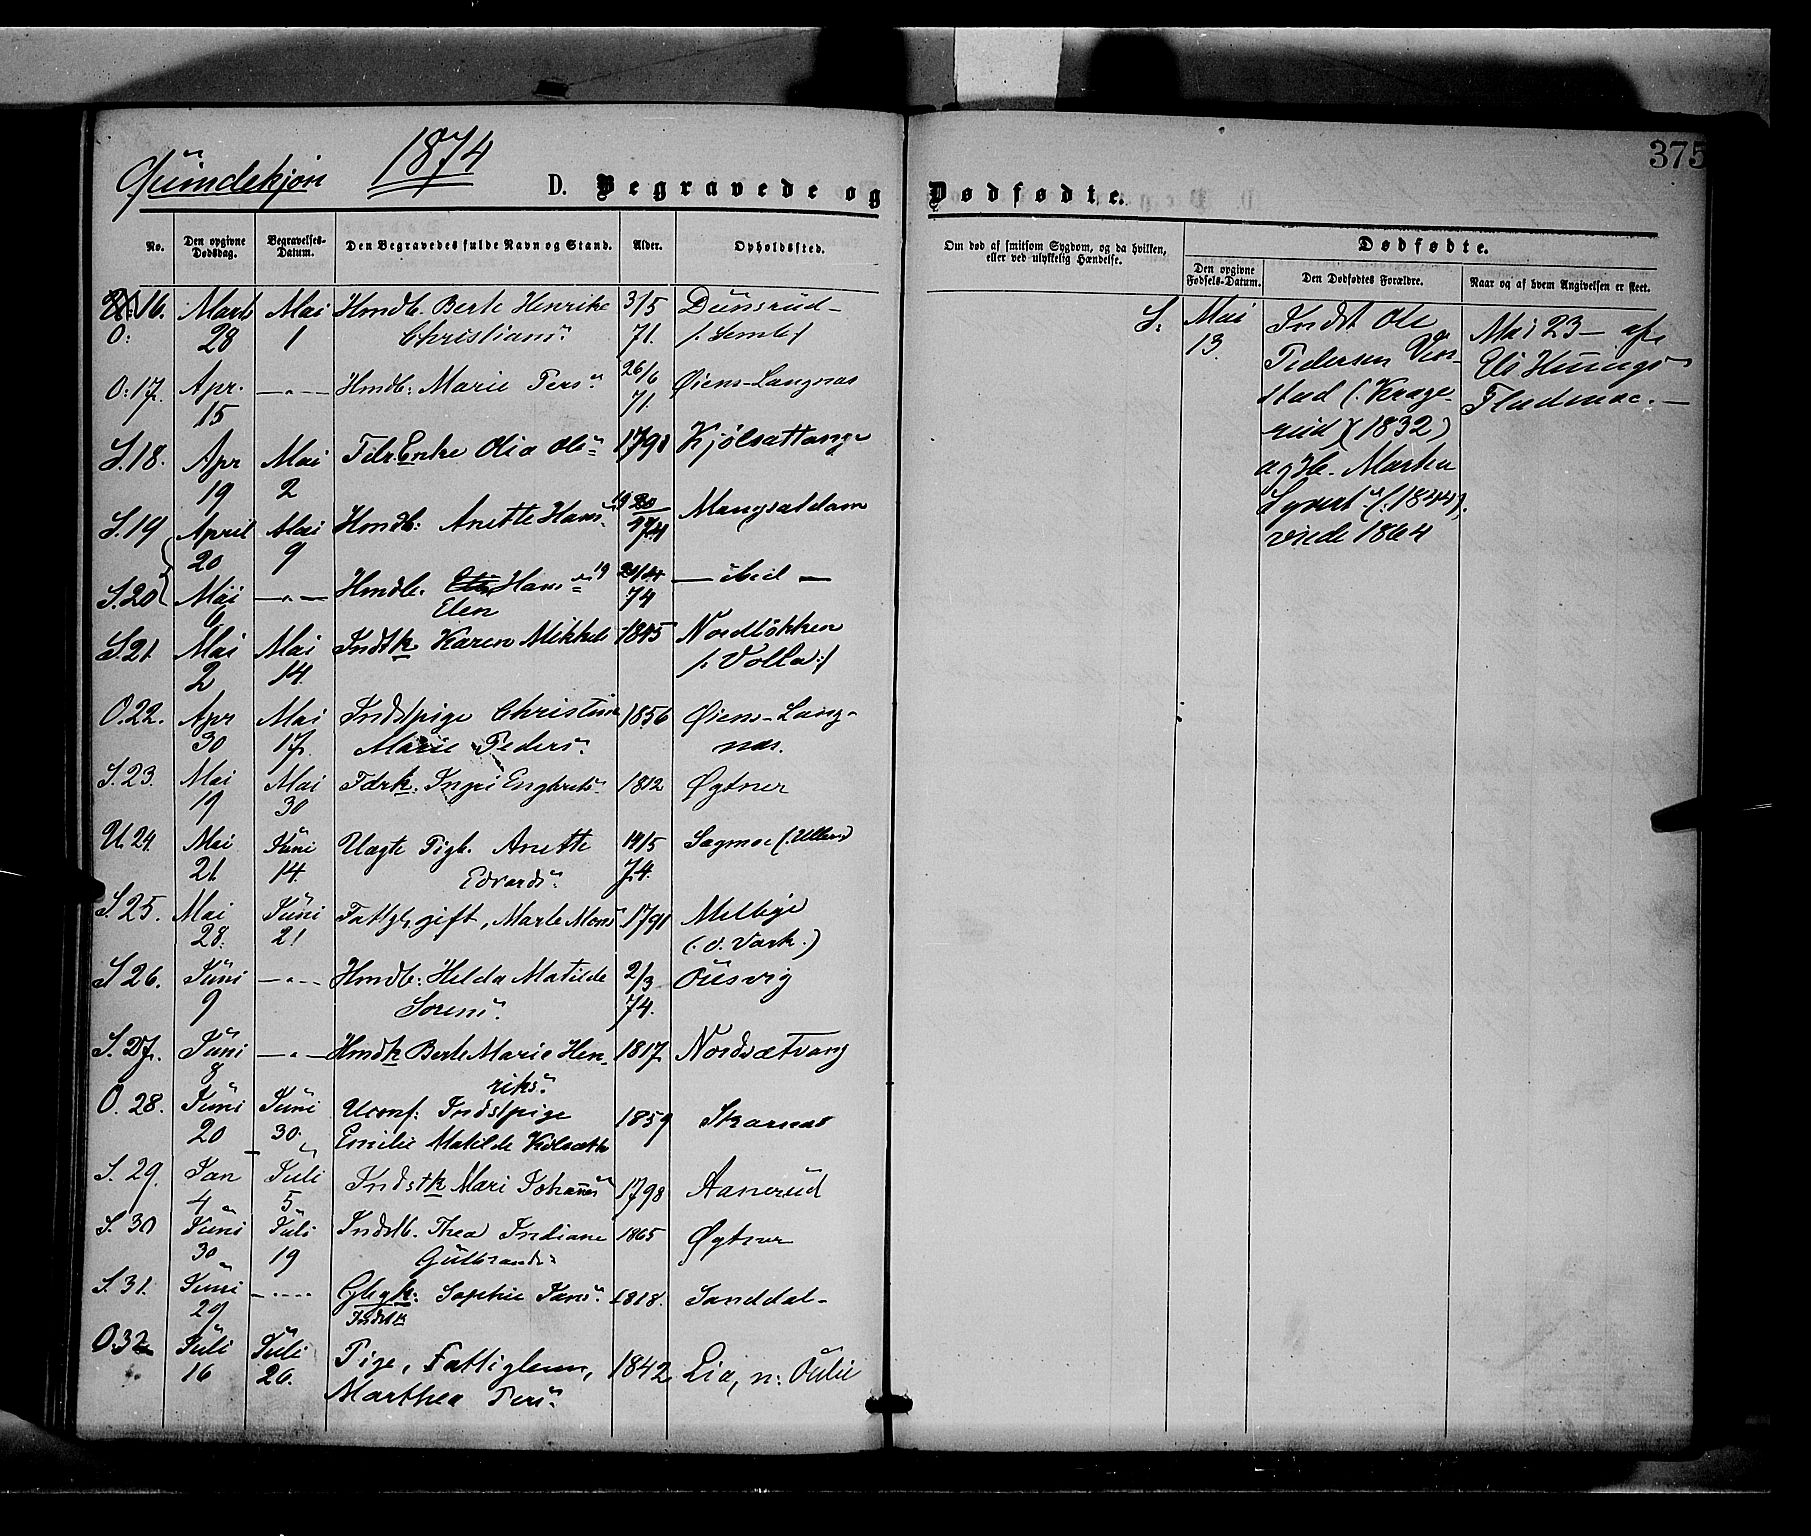 375
Qvindekjøn 1874
D. Begravede og Dødfødte.
No. Den opgivne Dødsdag. Begravelses-Datum. Den Begravedes fulde Navn og Stand. Alder. Opholdssted. Om død af smitsom Sygdom, og da hvilken, eller ved ulykkelig Hændelse. Dødfødte.
Den opgivne Fødsels-Datum. Den Dødfødtes Forældre. Naar og af hvem Angivelsen er skeet.
16. Marts Mai Hmdb. Berte Henrike 3/5 Dunsrud
O: 28 1 Christians" 71.
O: 17. Apr. —"— Hmdb: Marie Pers" 26/6 Øiens-Langnas
15 71.
S. 18. Apr Mai Fdr. Enke Olia Ols" 1798 Kjölsattange
19 2
S. 19 April Mai Hmdb: Anette Hans" Mangsatdam
20 9 74
S. 20 Mai —"— Hmdb. Hans" — ibid —
6 Elen 74
S 21 Mai Mai Indstk Karen Mikkels 1845 Nordlökken
2 14. /: Volla :/
O. 22. Apr Mai Indstpige Christine 1856 Øiens-Lang-
30 17. Marie Peders". nas.
S. 23. Mai Mai Fdrk. Ingri Engbrets" 1812 Øgtner
19 30
U. 24. Mai Juni Uægte Pigb. Anette 14/5 Sagmoe
21 14. Edvards". 74.
S. 25. Mai Juni Fattgl. gift, Marte Mons" 1791
28. 21 (: v. Vark :)
S 26. Juni —"— Hmdb: Helda Matilde 2/3 Ousvig
9 Sorens". 74.
S. 27. Juni —"— Hmdk Berte Marie Hen- 1817 Nordsætvang
8 riks".
O. 28. Juni Juni Uconf: Indstpige 1859 Skarnas
20 30. Emilie Matilde Kolsæth
S. 29. Jan Juli Indstk Mari Johannes" 1798 Aanerud
4 5
S. 30 Juni Juli Indstb. Thea Indiane 1865 Øgtner
30 19 Gulbrands"
S. 31. Juni —"— Sophie Jans". 1818. Sanddal
29 Indstk
O. 32 Juli Juli Pige, Fattiglem, 1842 Lia, n: Oulie
16 20. Marthea Pers"
S: Mai Indst Ole Mai 23 — af
13. Pedersen
stad (: Krage-
rud) (1832)
og H. Marthe
Syvert" (: 1844).
viede 1864